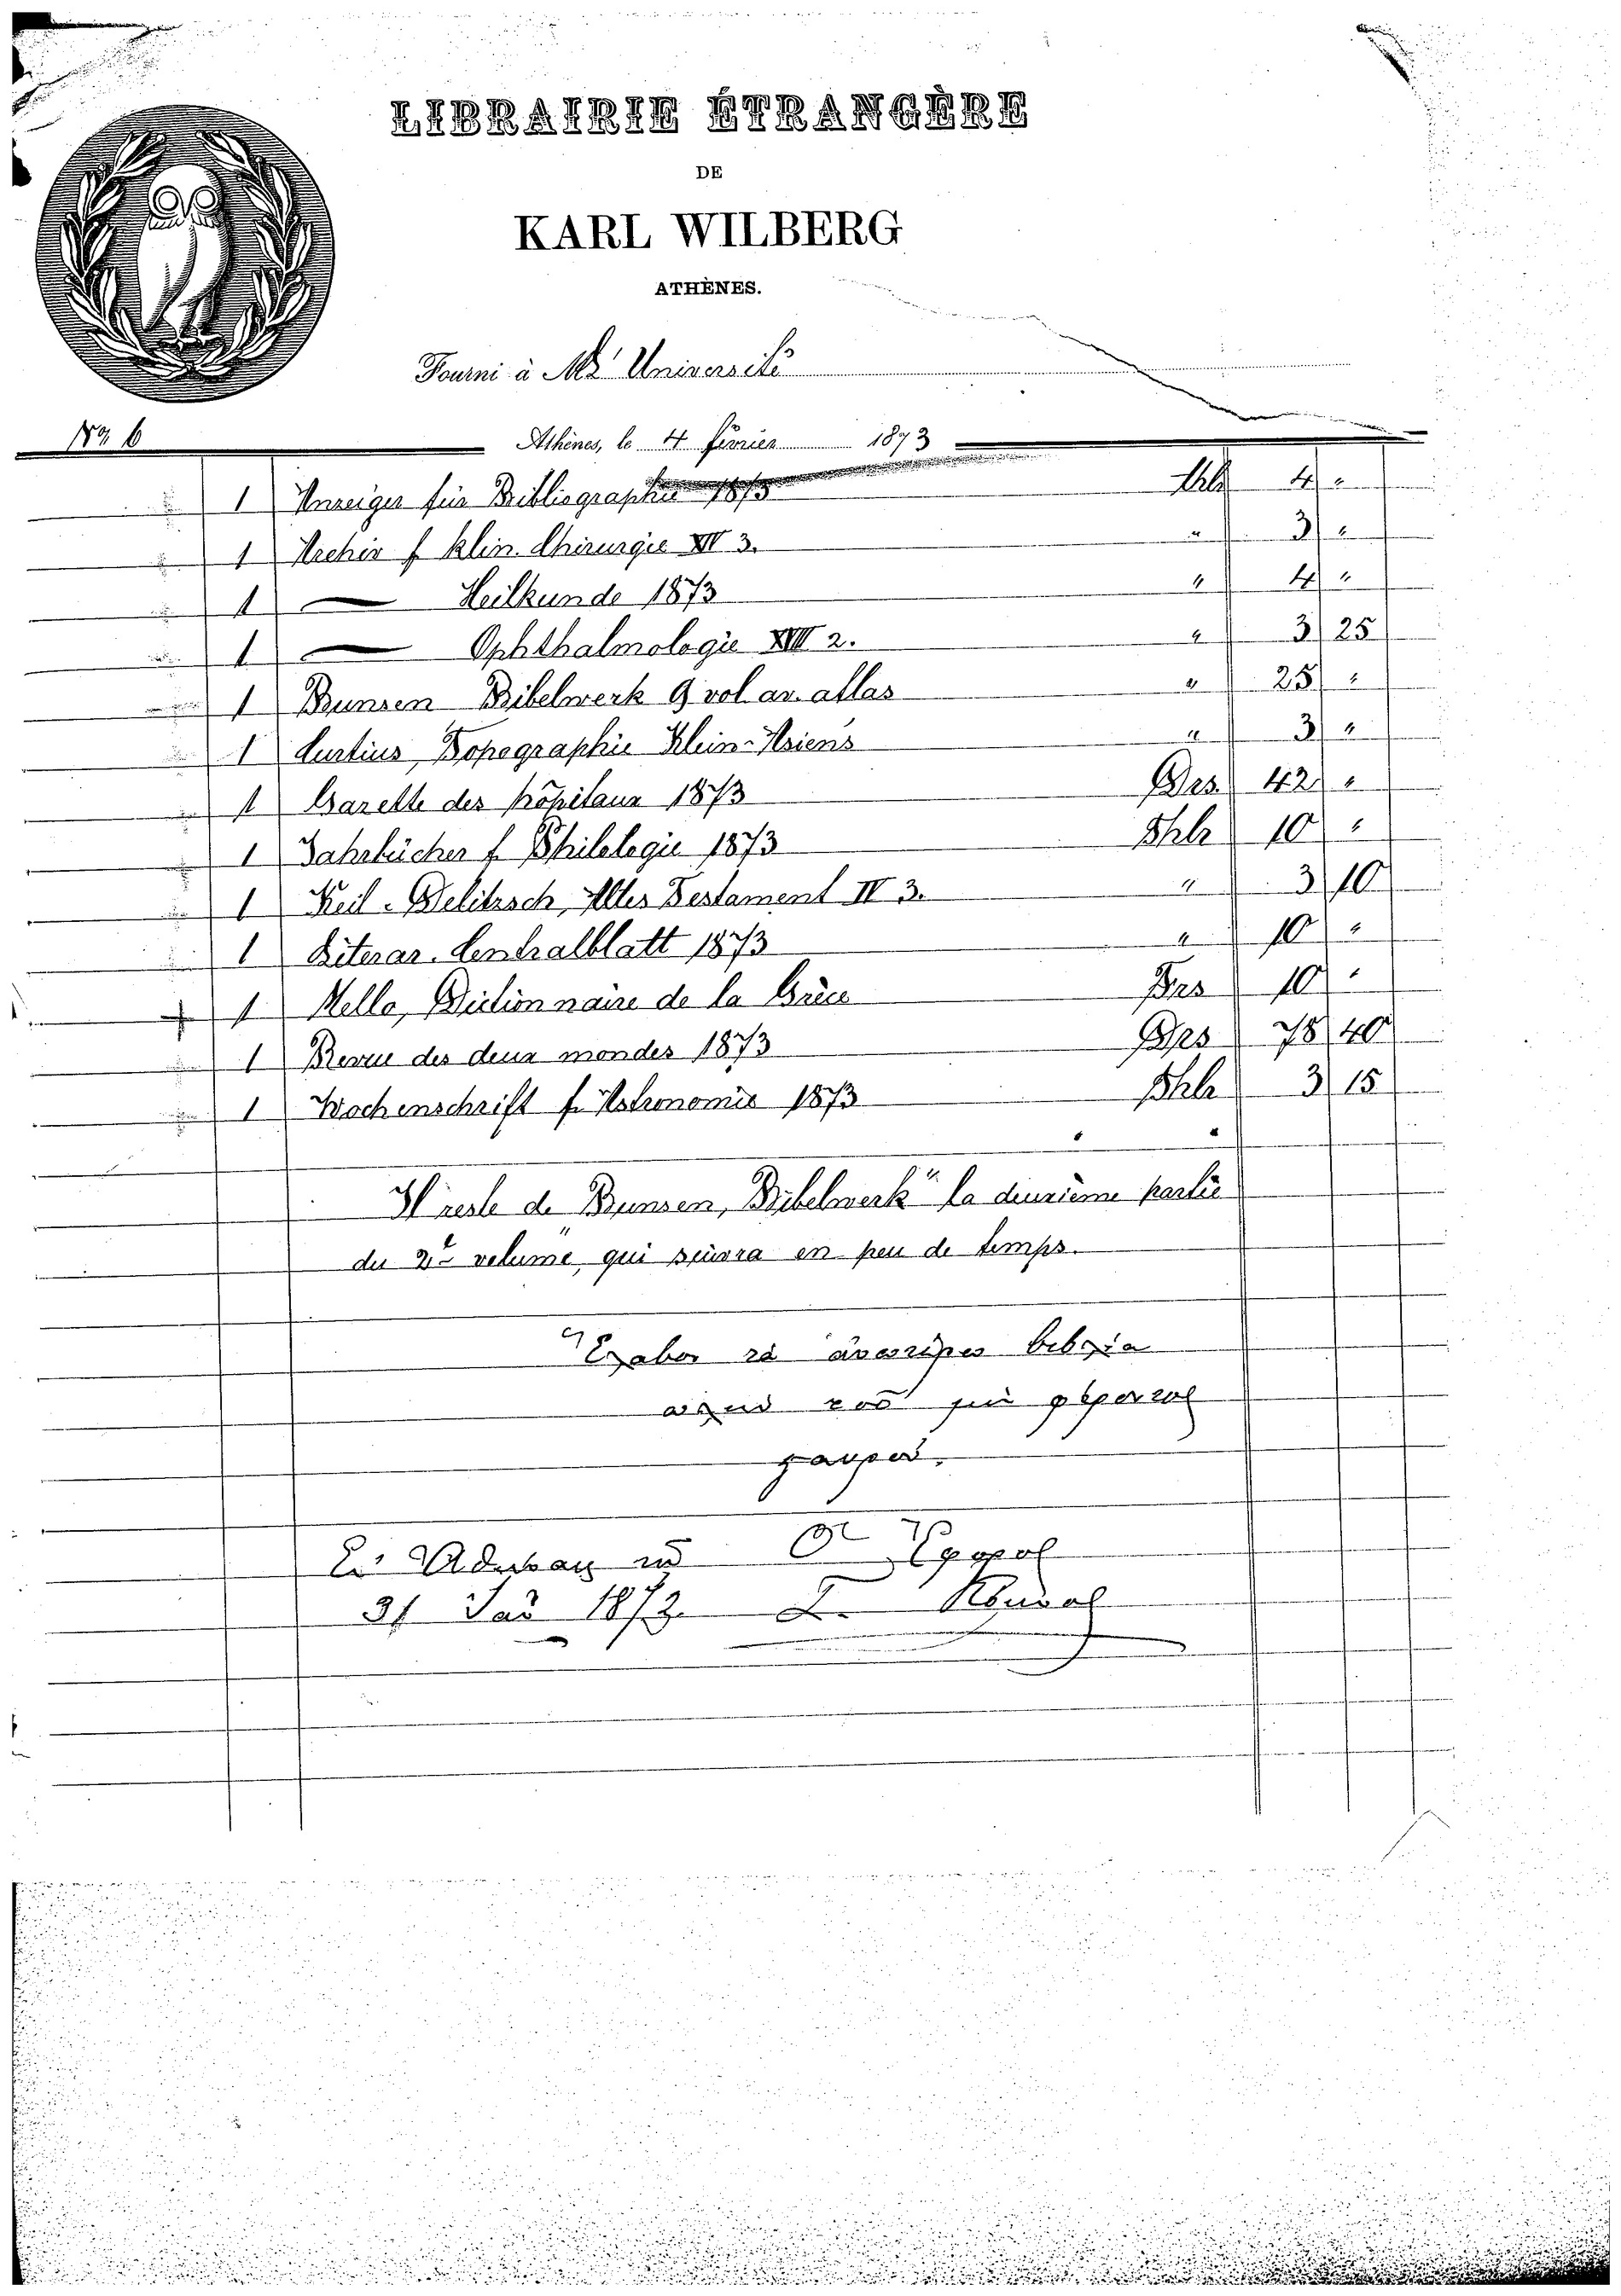 LIBRAIRIE ÉTRANGÈRE
DE
KARL WILBERG
ATHÈNES.
Fourni à Mr Université
No 6
Athènes, le 4 février 1873
1 Anzeiger für Bibliographie 1873 Thlr 4 "
1 Archiv f klin. Chirurgie XIV 3. " 3 "
1 — Heilkunde 1873 " 4 "
1 — Ophthalmologie XVIII 2. " 3 25
1 Bunsen Bibelwerk 9 vol. av. atlas " 25 "
1 Curtius, Topographie Klein-Asiens " 3 "
1 Gazette des hôpitaux 1873 Drs. 42 "
1 Jahrbücher f. Philologie 1873 Thlr 10 "
1 Keil-Delitzsch, Altes Testament IV 3. " 3 10
1 Literar. Centralblatt 1873 " 10 "
1 Dictionnaire de la Grèce 10 "
1 Revue des deux mondes 1873 Drs 78 40
1 Wochenschrift f. Astronomie 1873 Thlr 3 15
Il reste de "Bunsen, Bibelwerk" la deuxième partie
du 2e volume, qui suivra en peu de temps.
Ἔλαβον τὰ ἀνωτέρω βιβλία
πλὴν τοῦ μὴ φέροντος
σταυρόν.
Ἐν Ἀθήναις τῇ Ὁ Ἔφορος
31 Ιαν 1873